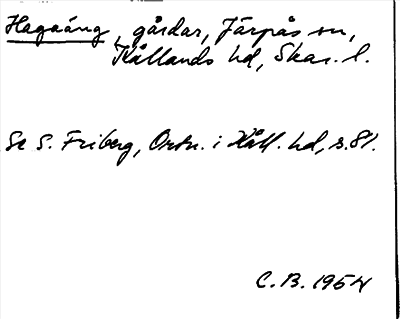 Hagaäng, gårdar, Järpås sn,
Kållands hd, Skar. l.
Se S. Friberg, Ortn. i Kåll. hd, s. 81.
C.B. 1954